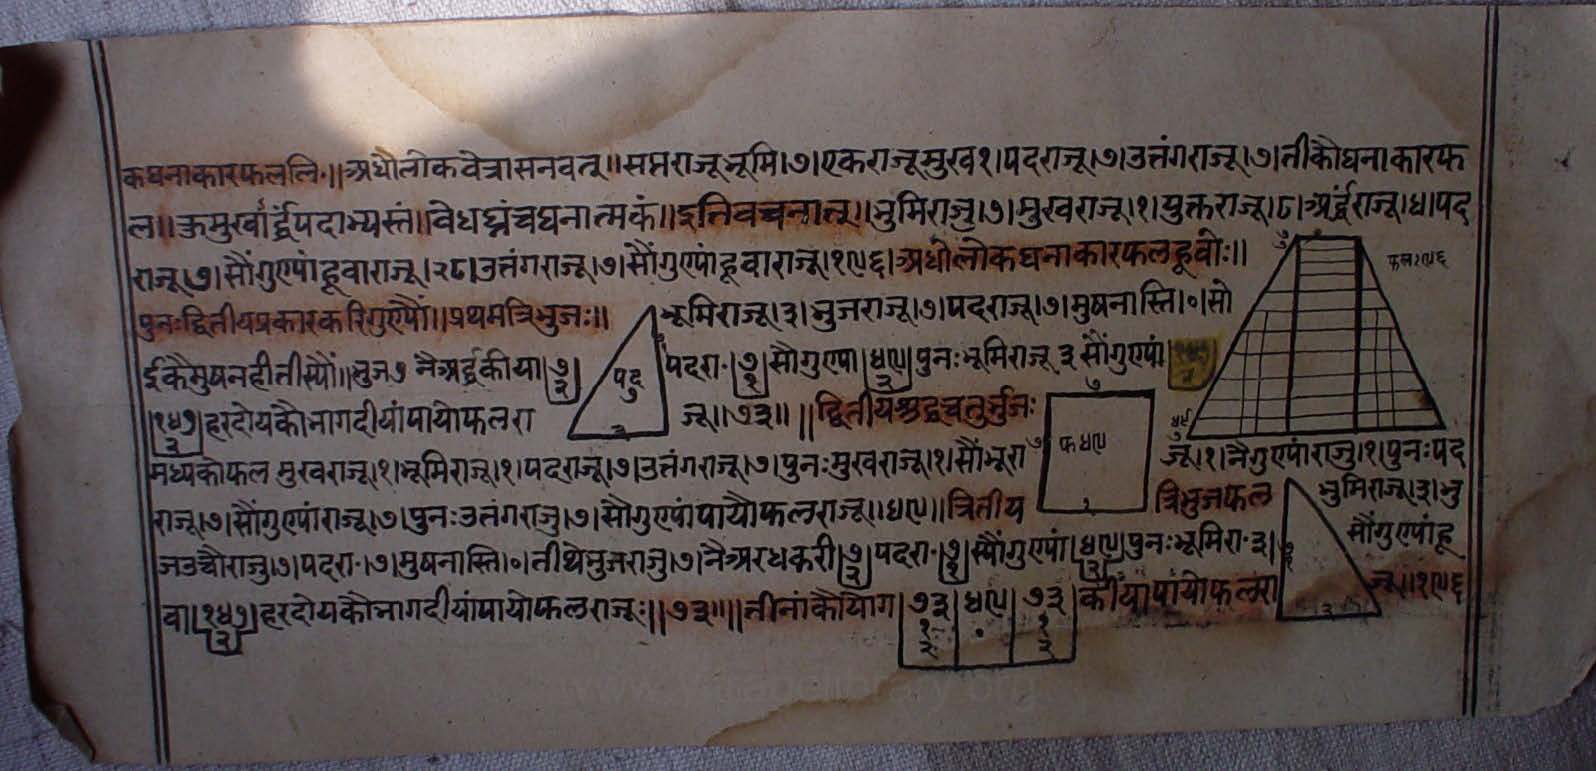 कघनाकारफललि॰॥अधौलोकवेत्रासनवत्॥सप्तराजूभूमि।७।एकराजूमुख१।पदराजू।७।उत्तंगराजू।७।तीकौघनाकारफ
ल॥ पदाभ्यस्तं॥वेधघ्नंचघनात्मकं॥इतिवचनात्॥भुमिराजु।७।मुखराजू।१।युक्तराजू।८।अर्द्धराजू।४।पद
राजू।७।सौंगुएपांहूवाराजू।२८।उत्तंगराजू।७।सौंगुएपांहूवाराजू।१९६।अधोलोकघनाकारफलहूवोः॥
फल१९६
पुनःद्वितीयप्रकारकरिगुएपौं॥प्रथमत्रिभुजः॥ भूमिराजू।३।भुजराजू।७।पदराजू।७।मुषनास्ति।०।सो
ईकैमुषनहीतीस्यौं॥भुज७ नैअर्द्धकीया।७।२ पद ७ ३ पदरा॰।७।१ सौगुएपा ४९ २ पुनःभूमिराजू ३ सौंगुएपां
१४७।२ हरदोयकौभागदीयांपायोफलरा जू॥७३॥ ॥द्वितीय चतुर्भुजः
मध्यकोफल मुखराजू।१।भूमिराजू।१।पदराजू।७।उत्तंगराजू।७।पुनःमुखराजू।१।सौंभूरा ७ फ ४९ १ जू।१।नैगुएपांराजु।१।पुनःपद
राजू।७।सौंगुएपांराजू।७।पुनःउत्तंगराजु।७।सौगुएपांपायौफलराजू॥४९॥त्रितीय त्रिभुजफल भुमिराजू।३।भु
जउचौराजु।७।पदरा॰।७।मुषनास्ति।०।तीथेभुजराजु।७।नैअरधकरी।७।२ पदरा॰।७।१ स्यौंगुएपां।४९।२ पुनःभूमिरा॰३। सौंगुएपांहू
वा।१४७।२ हरदोयकौभागदीयांपायोफलराजूः॥७३॥॥तीनांकौयोग ७३ १ २ ४९ ० ७३ १ २ कीयांपायोफलरा ३ जू॥१९६